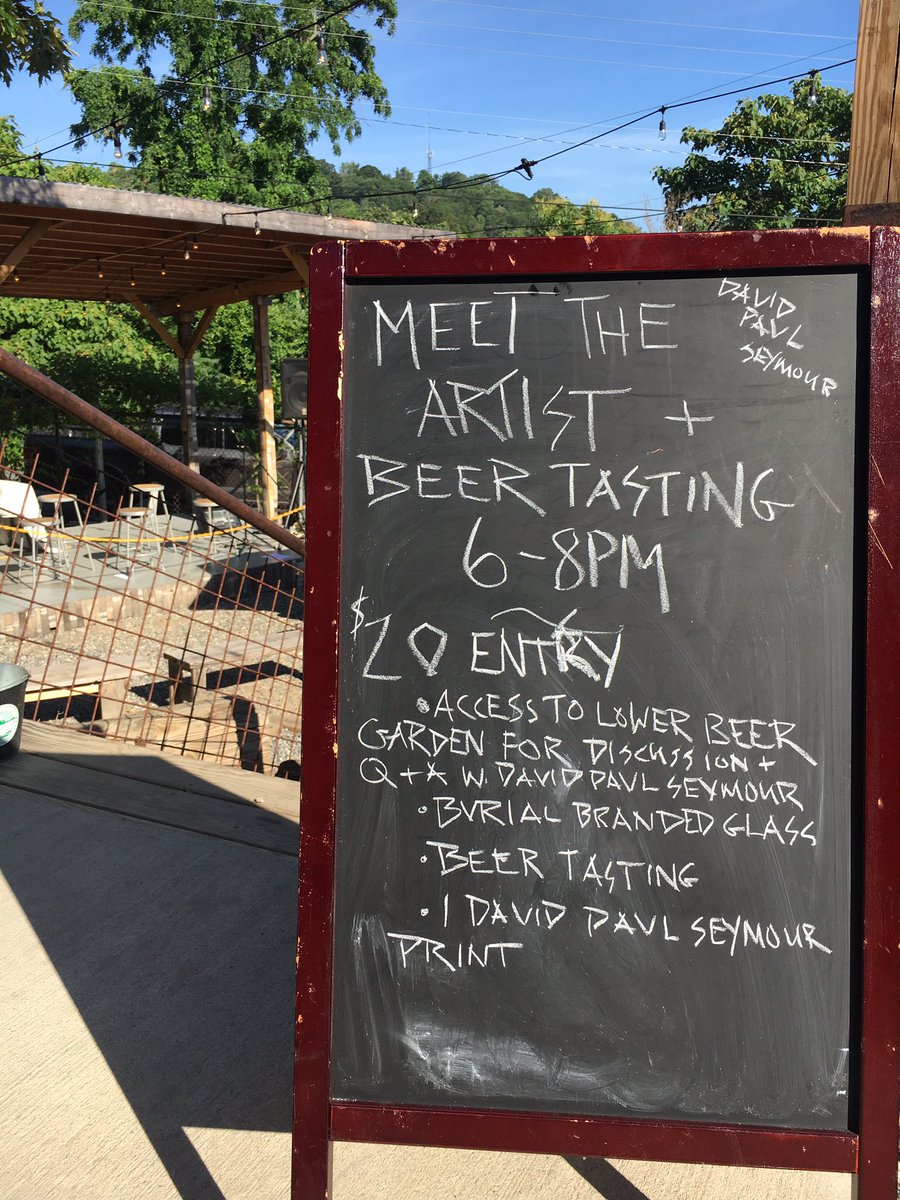 MEET THE
DAVID
PAUL
SEYMOUR
ARTIST +
BEER TASTING
6-8PM
$20 ENTRY
• ACCESS TO LOWER BEER
GARDEN FOR DISCUSSION +
Q+A W. DAVID PAUL SEYMOUR
• BURIAL BRANDED GLASS
• BEER TASTING
• 1 DAVID PAUL SEYMOUR
PRINT